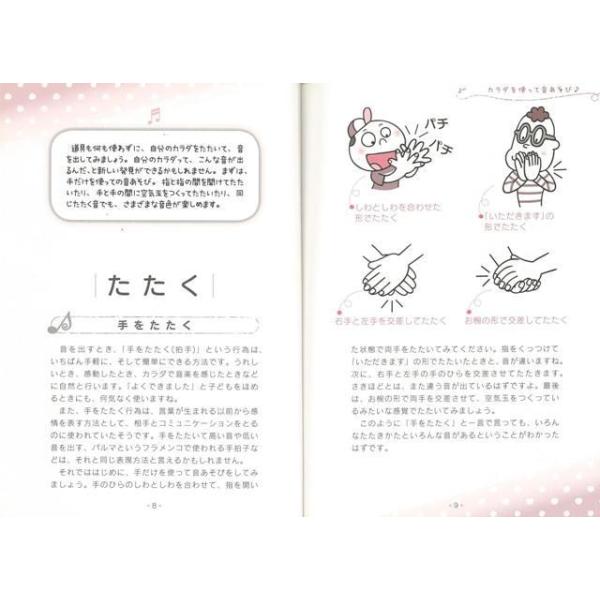 道具も何も使わずに、自分のカラダをたたいて、音
を出してみましょう。自分のカラダって、こんな音が出
るんだ、と新しい発見ができるかもしれません。まずは、
手だけを使っての音あそび。指と指の間を開けてたた
いたり、手と手の間に空気玉をつくってたたいたり、同
じたたく音でも、さまざまな音色が楽しめます。
たたく
手をたたく
音を出すとき、「手をたたく(拍手)」という行為は、
いちばん手軽に、そして簡単にできる方法です。うれし
いとき、感動したとき、カラダで音楽を感じたときなど
に自然と行います。「よくできました」と子どもをほめ
るときにも、何気なく使いますね。
また、手をたたく行為は、言葉が生まれる以前から感
情を表す方法として、相手とコミュニケーションをとる
のに使われていたそうです。手をたたいて高い音や低い
音を出す、パルマというフラメンコで使われる手拍子な
どは、それと同じ表現方法と言えるかもしれません。
それでははじめに、手だけを使って音あそびをしてみ
ましょう。手のひらのしわとしわを合わせて、指を開い
- 8 -
カラダを使って音あそび♪
パチ
パチ
しわとしわを合わせた
形でたたく
「いただきます」の
形でたたく
右手と左手を交差してたたく
お椀の形で交差してたたく
た状態で両手をたたいてみてください。指をくっつけて
「いただきます」の形でたたいたときと、音が違いますね。
次に、右手と左手の手のひらを交差させてたたきます。
さきほどとは、また違う音が出ているはずですよ。最後
は、お椀の形で両手を交差させて、空気玉をつくってい
るみたいな感覚でたたいてみましょう。
このように「手をたたく」と一言で言っても、いろん
なたたきかたといろんな音があるということがわかった
はずです。
- 9 -